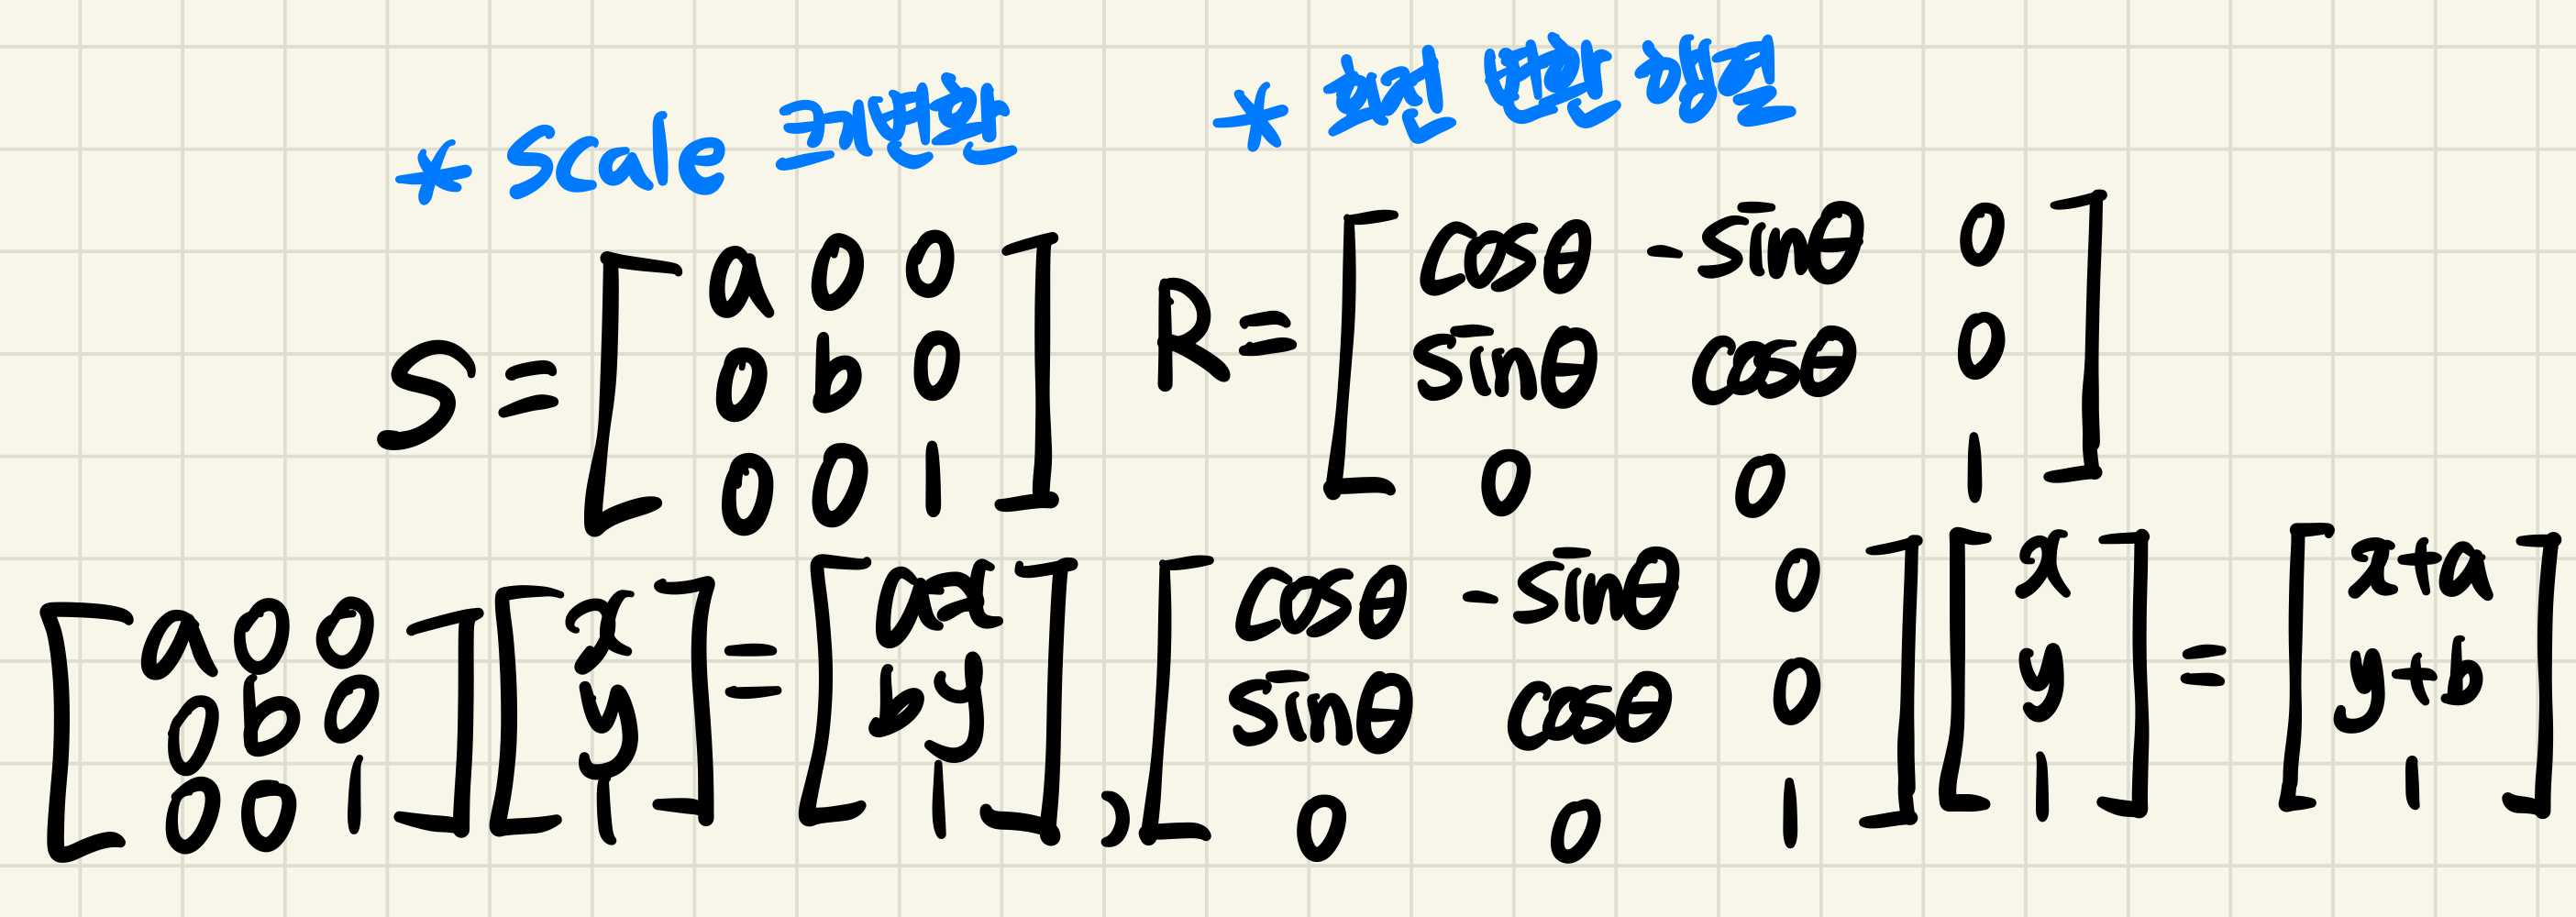 * Scale 크기변환
* 회전 변환 행렬
S = [a 0 0
0 b 0
0 0 1]
R = [cosθ -sinθ 0
sinθ cosθ 0
0 0 1]
[a 0 0
0 b 0
0 0 1] [x
y
1] = [ax
by
1] ,
[cosθ -sinθ 0
sinθ cosθ 0
0 0 1] [x
y
1] = [x+a
y+b
1]